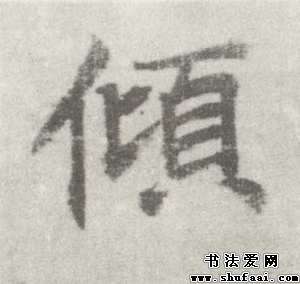 傾
书法爱网
www.shufaai.com